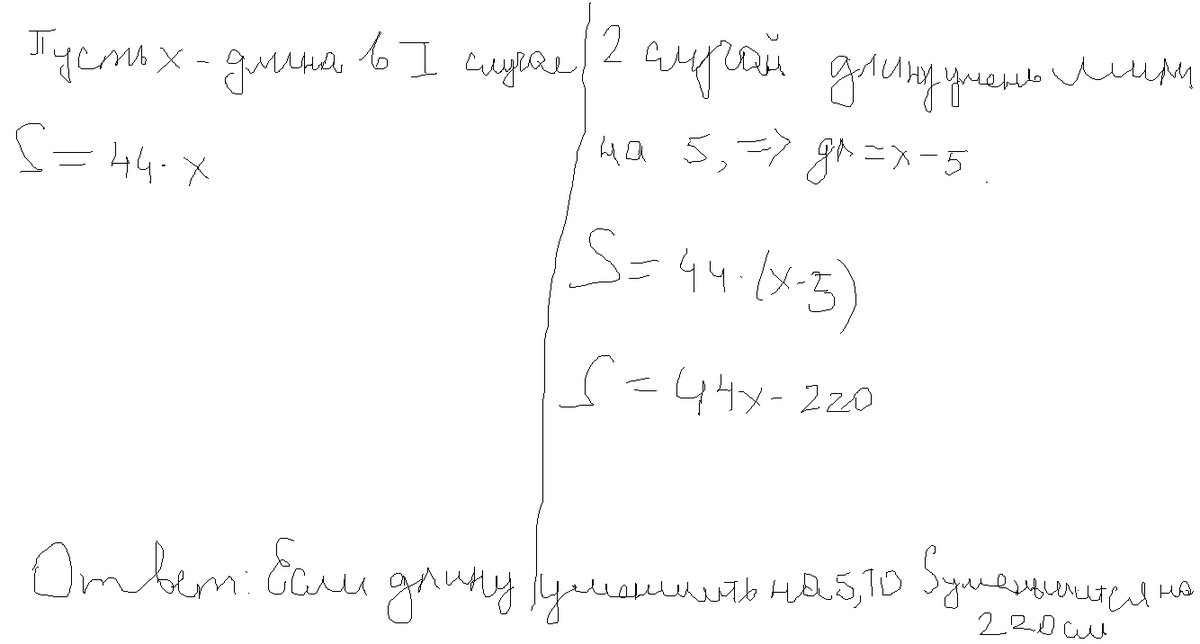 Пусть х - длина в I случае
S = 44 · х
2 случай длину уменьшили
на 5, => дл = х - 5.
S = 44 · (х - 5)
S = 44х - 220
Ответ: Если длину уменшить на 5, то S уменьшится на
220 см